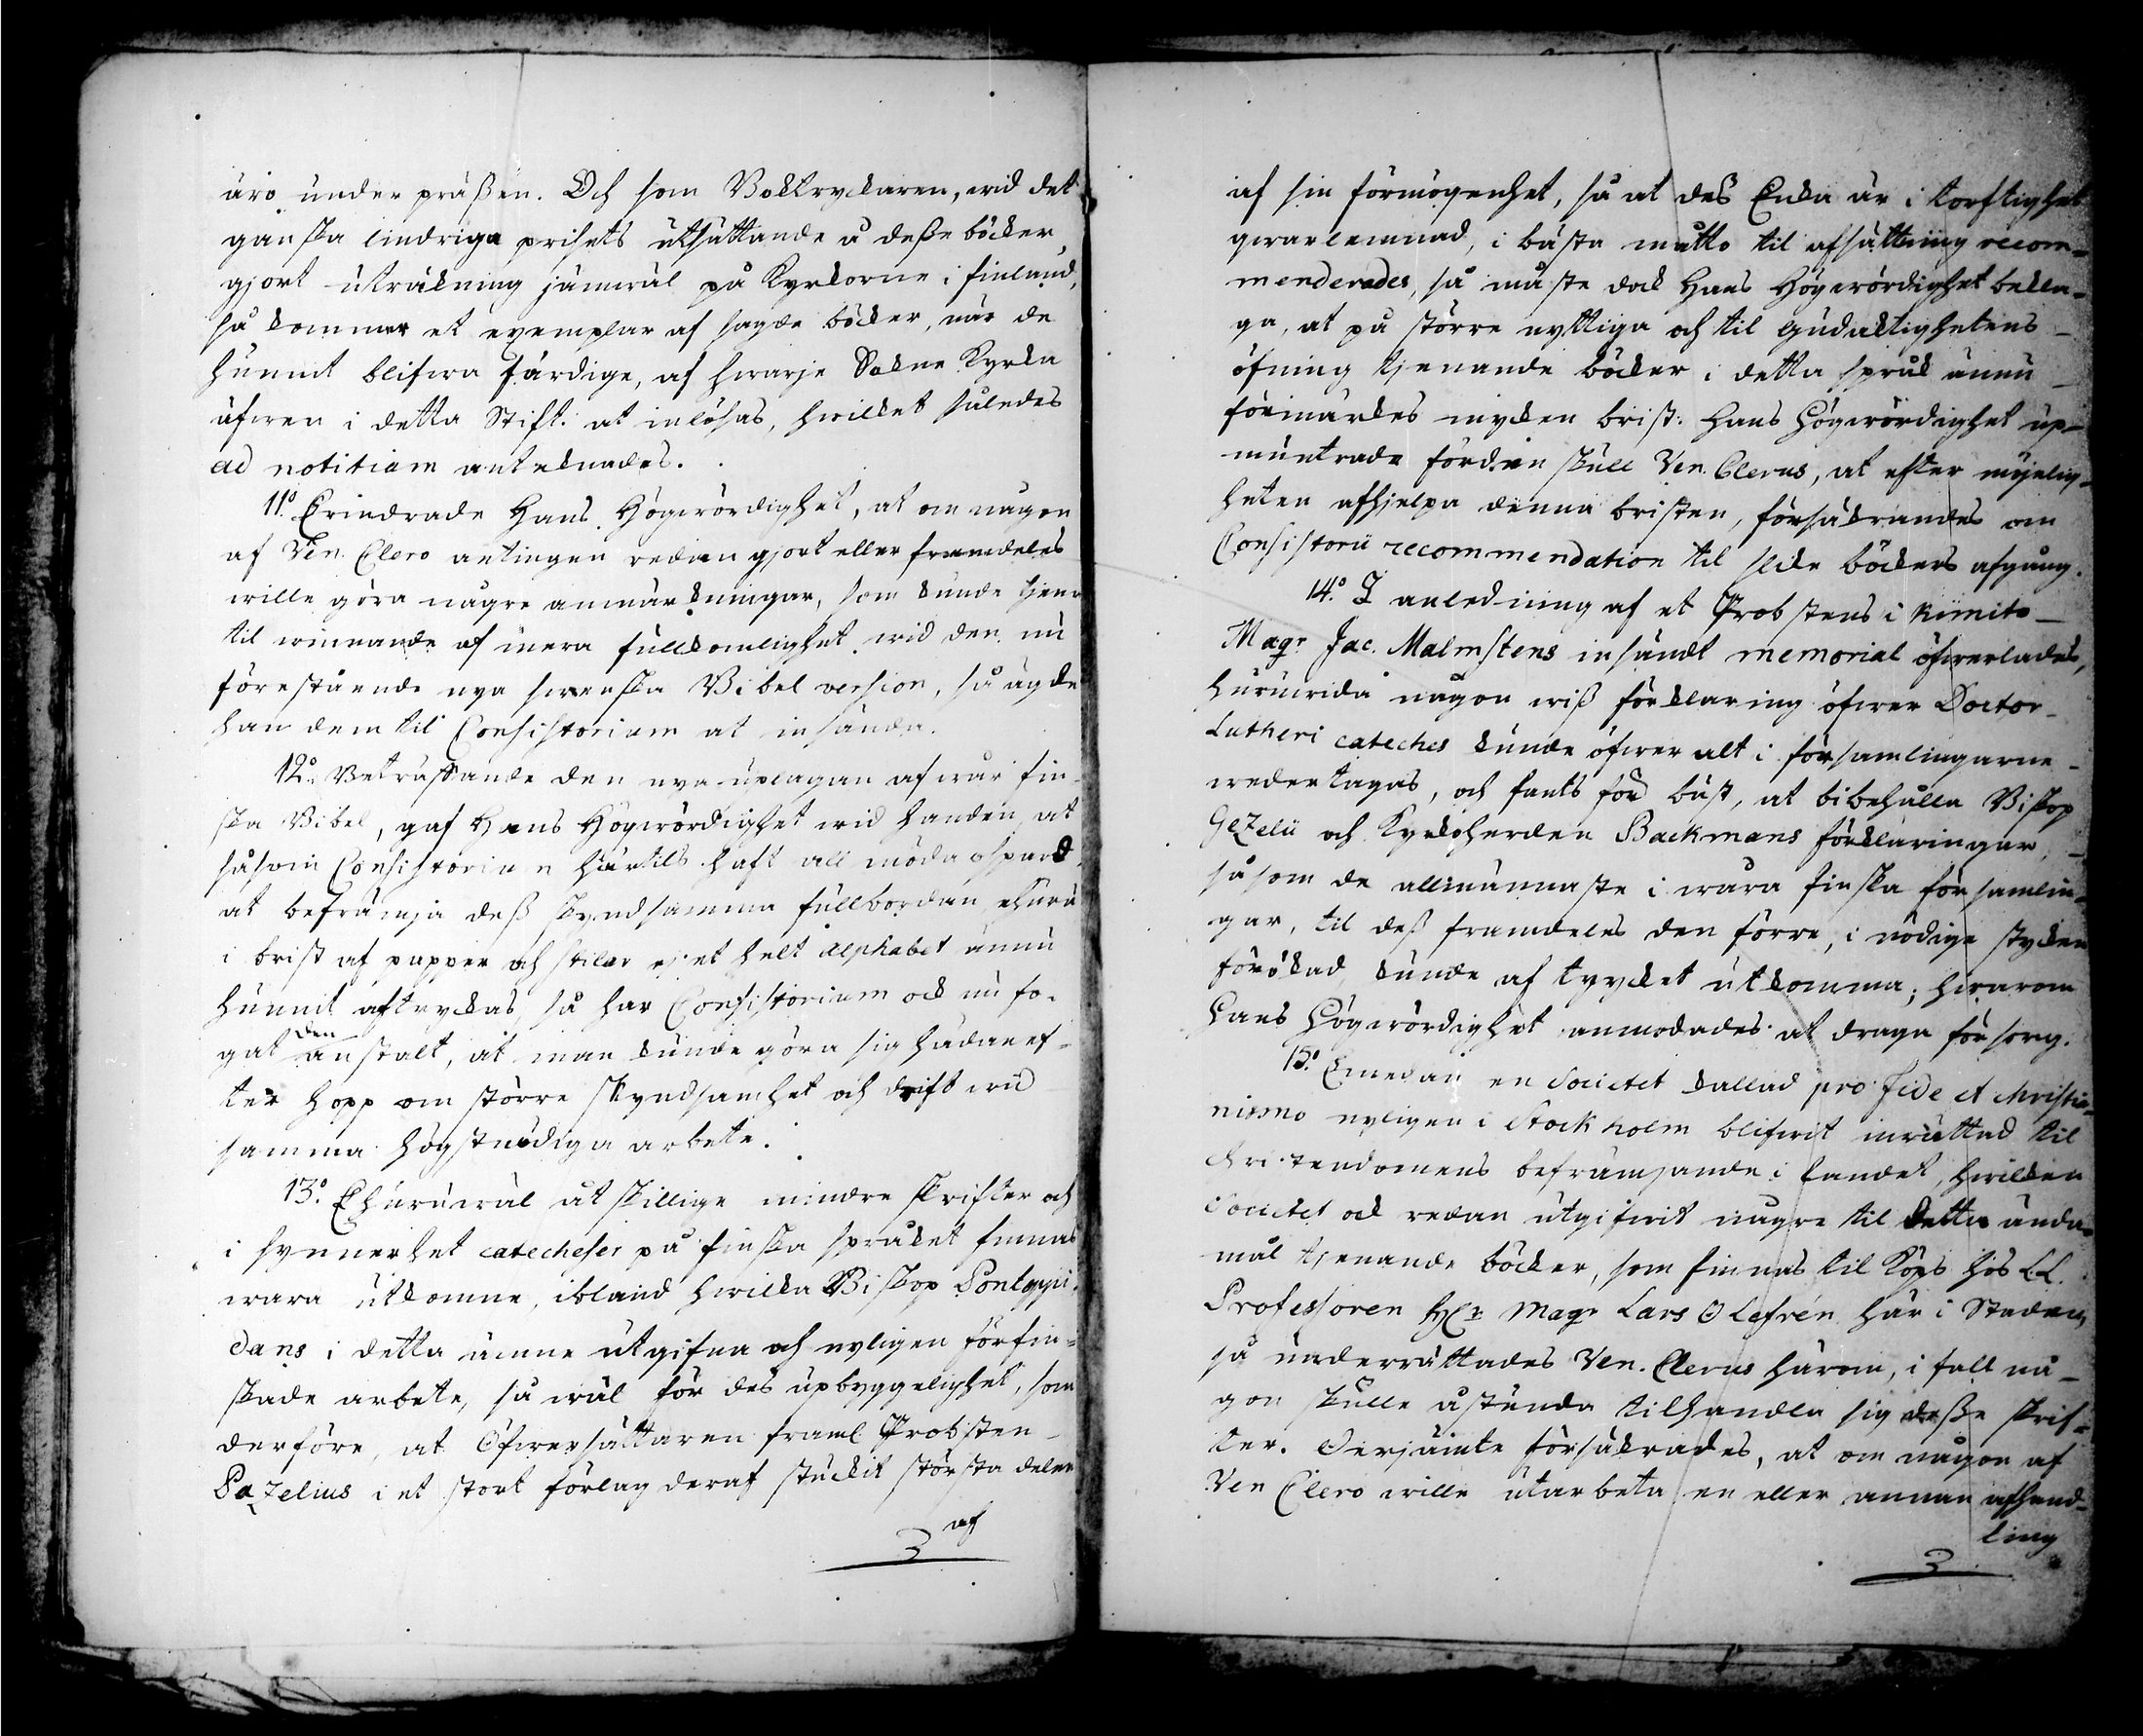 äro under präßen. Och som Boktryckaren, wid det
ganska lindriga prisets utsättande å deße böcker,
gjort uträkning jämwäl på Kyrkorne i finland,
så kommer et exemplar af sagde böcker, när de
hunnit blifwa färdige, af hwarje Sokne Kyrka
äfwen i detta Stift. at inlösas, hwilket således
ad notitiam anteknades.
11.º Erindrade Hans Högwördighet, at om någon
af Ven. Clero antingen redan gjort eller framdeles
wille göra några anmärkningar, som kunde tjena
til winnande af mera fullkomlighet wid den nu
förestående nya swenska Bibel version, så ägde
han dem til Consistorium at insända.
12.º Beträffande den nya uplagan af wår fin-
ska Bibel, gaf Hans Högwördighet wid handen, at
såsom Consistorium härtils haft all möda ospard
at befrämja deß skyndsamma fullbordan, ehuru
i brist af papper och stilar ej et helt alphabet ännu
hunnit aftryckas, så har Consistorium ock nu fo-
gat den anstalt, at man kunde göra sig hädanef-
ter hopp om större skyndsamhet och drift wid
samma högstnödiga arbete.
13.º Ehuruwäl åtskillige mindre skrifter och
i synnerhet catecheser på finska språket finnas
wara utkomne, ibland hwilka Biskop Pontoppi-
dans i detta ämne utgifna och nyligen förfin-
skade arbete, så wäl för des upbyggelighet, som
derföre, at Öfwersättaren framl Probsten
Pazelius i et stort förlag deraf stuckit största delen
af
af sin förmögenhet, så at des Enka är i torftighet
qwarlemnad, i bästa matto til afsättning recom-
menderades, så måste dock Hans Högwördighet bekla-
ga, at på större nyttiga och til Gudaktighetens
öfning tjenande böcker i detta språk ännu
förmärkes mycken brist: Hans Högwördighet up-
muntrade fördenskull Ven. Clerus, at efter möjelig-
heten afhjelpa denna bristen, försäkrandes om
Consistorii recommendation til slike böckers afgång.
14.º I anledning af et Probstens i Kimito
Magr Jac. Malmstens insändt memorial öfwerlades,
huruwida någon wiß förklaring öfwer Doctor
Lutheri cateches kunde öfwer alt i församlingarne
wedertagas, och fants för bäst, at bibehålla Biskop
Gezelii och Kyrkoherden Backmans förklaringar,
såsom de allmännaste i wåra finska församlin-
gar, til deß framdeles den förre, i nödige stycken
förökad, kunde af trycket utkomma; hwarom
Hans Högwördighet anmodades at draga försorg.
15.º Emedan en Societet kallad pro fide et christia-
nismo nyligen i Stockholm blifwit inrättad til
christendomens befrämjande i landet, hwilken
Societet ock redan utgifwit några til detta ända-
mål tjenande böcker, som finnas til Köps hos L.L.
Professoren H:r Magr Lars O Lefrén här i Staden,
så underrättades Ven. Clerus härom, i fall nå-
gon skulle åstunda tilhandla sig deße skrif-
ter. Derjämte försäkrades, at om någon af
Ven Clero wille utarbeta en eller annan afhand-
ling